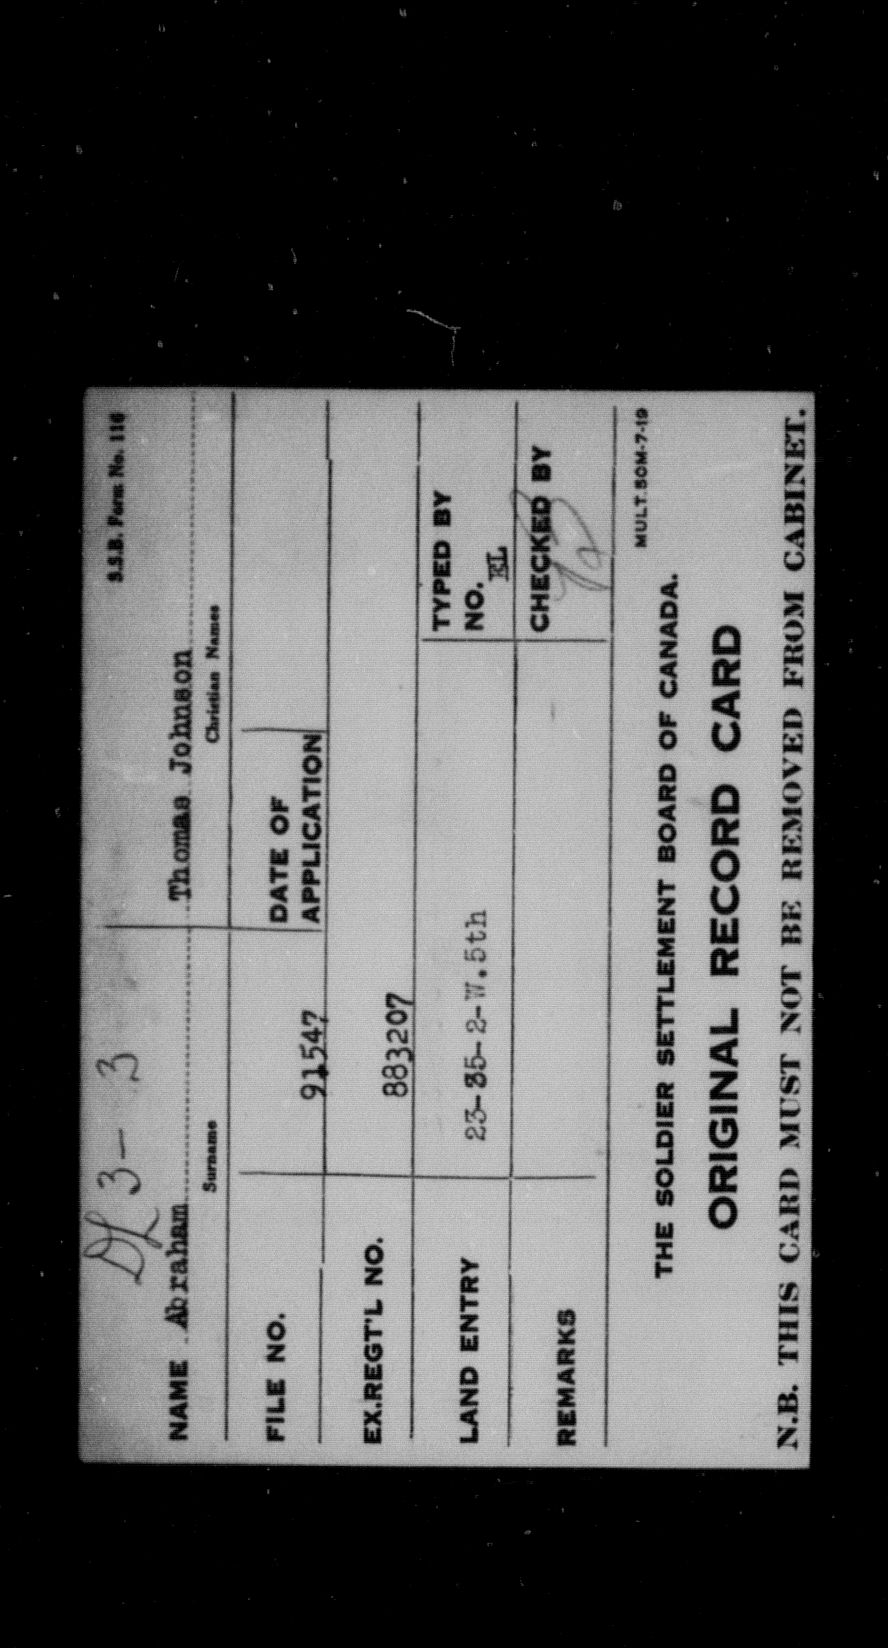 DL 3-3
S.S.B. Form No. 116
NAME Abraham Thomas Johnson
Surname Christian Names
FILE NO. 91547 DATE OF APPLICATION
EX.REGT'L NO. 883207
LAND ENTRY 23-35-2-W.5th TYPED BY NO. EL
REMARKS CHECKED BY
MULT.50M-7-19
THE SOLDIER SETTLEMENT BOARD OF CANADA.
ORIGINAL RECORD CARD
N.B. THIS CARD MUST NOT BE REMOVED FROM CABINET.